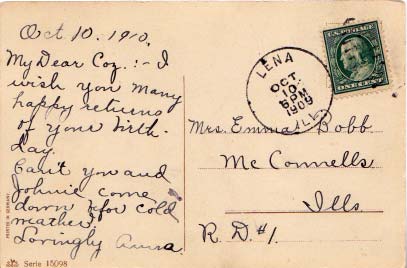 Oct 10, 1910.
My Dear Coz. :- I
wish you many
happy returns
of your birth-
day.
Can't you and
Johnie come
down before cold
weather?
Lovingly Anna.
LENA
OCT
10
5 PM
1909
ILL.
U.S. POSTAGE
ONE CENT
Mrs. Emma Bobb
McConnells
Ills.
R.D. #1.
PRINTED IN GERMANY
Serie 15098